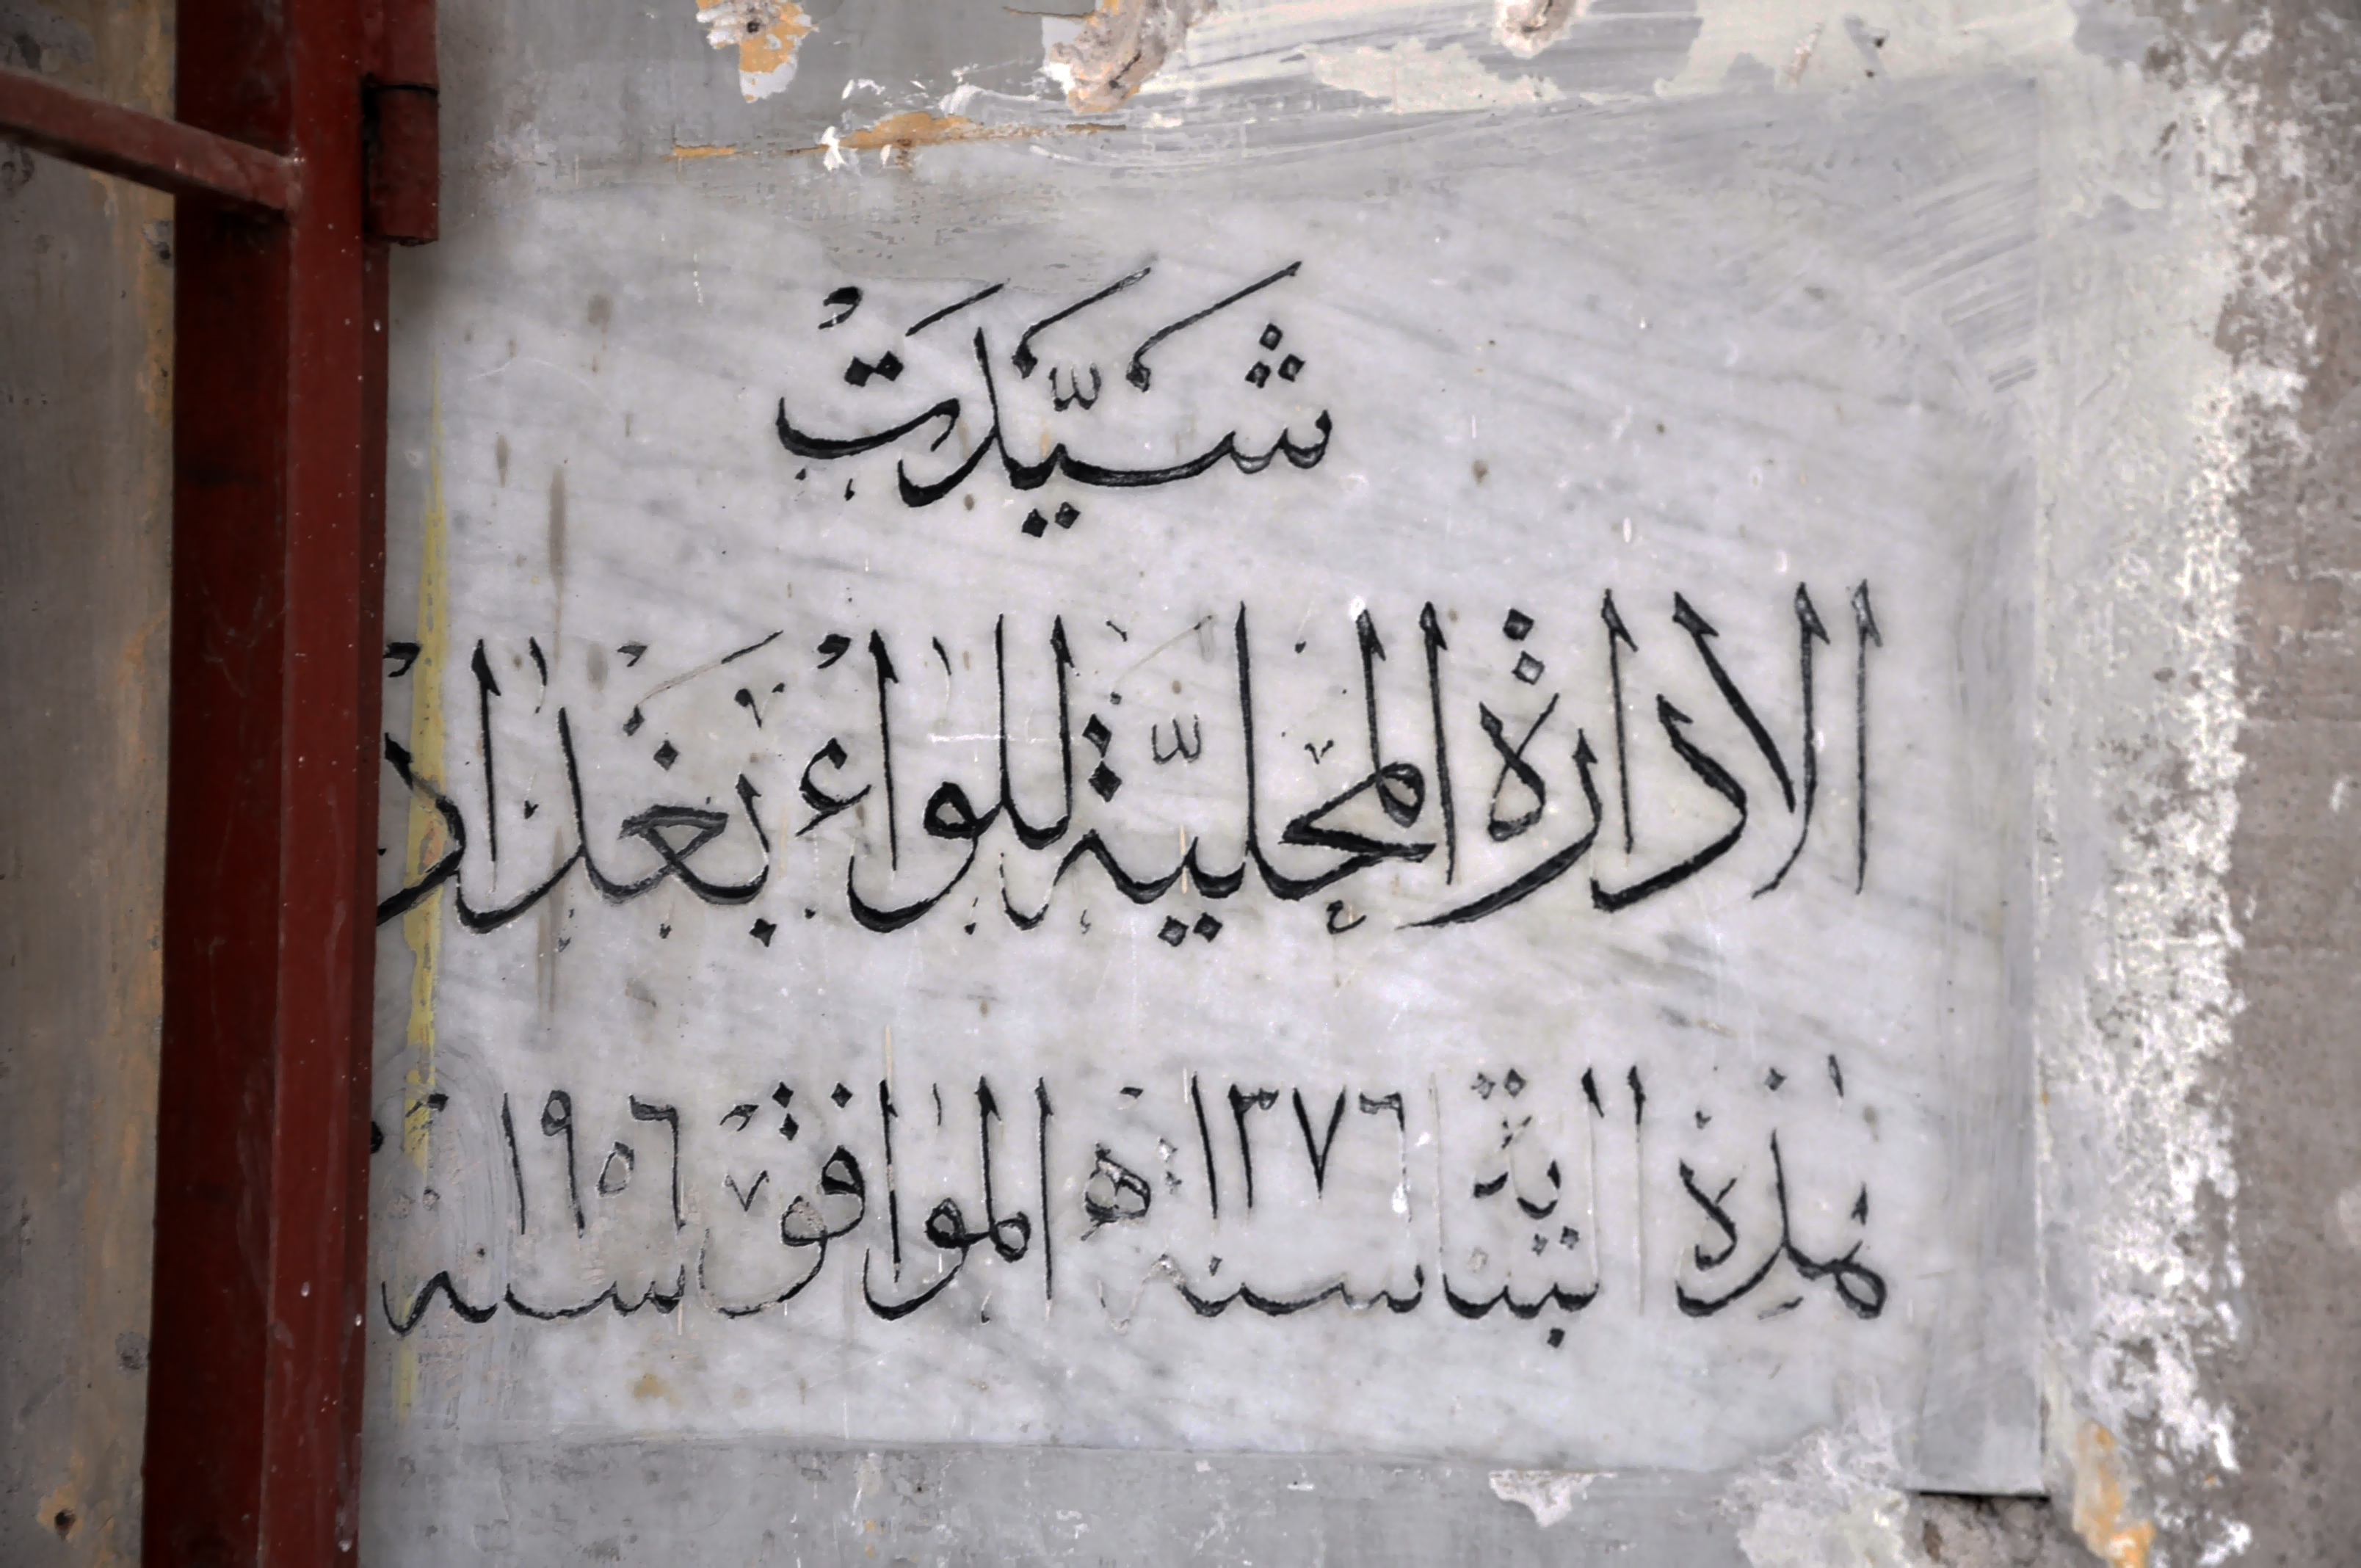 شَيَّدَتْ
الادارة المحليّة للواء بغداد
هذه البناية سنه ١٣٧٦ هـ الموافق سنه ١٩٥٦